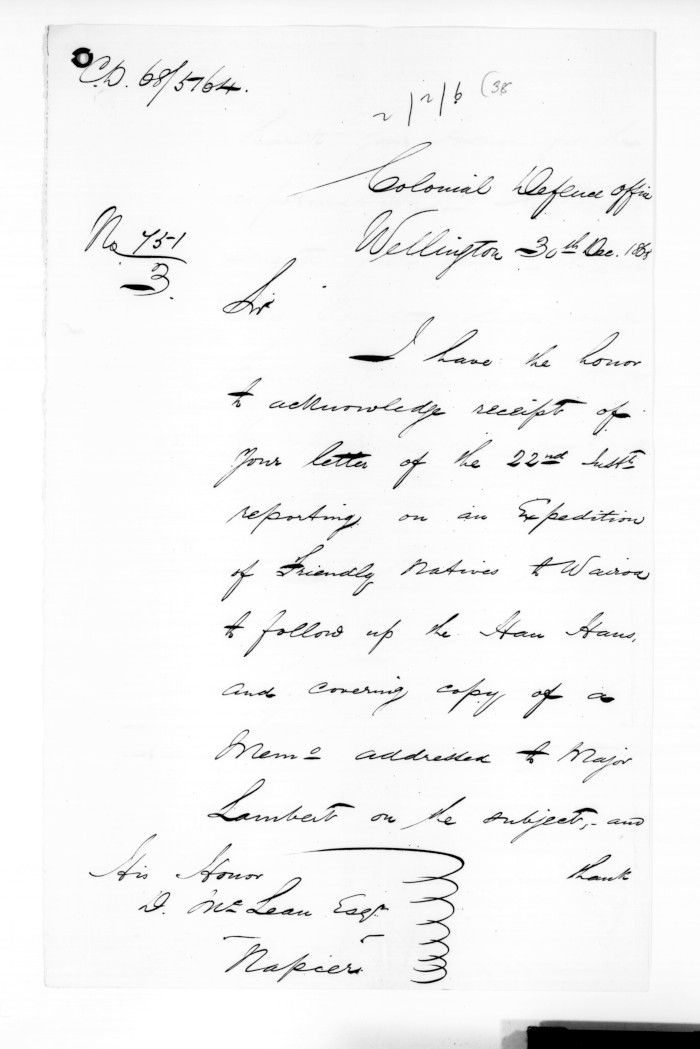 C.D. 68/5764.
2/2/6 (38
Colonial Defence Office
Wellington 30th Dec. 1868
No 751
3.
Sir
I have the honor
to acknowledge receipt of
your letter of the 22nd Inst
reporting on an Expedition
of Friendly Natives to Wairoa
to follow up the Hau Haus,
and covering copy of a
Memo addressed to Major
Lambert on the subject,- and
thank
His Honor
D. McLean Esqr
Napier